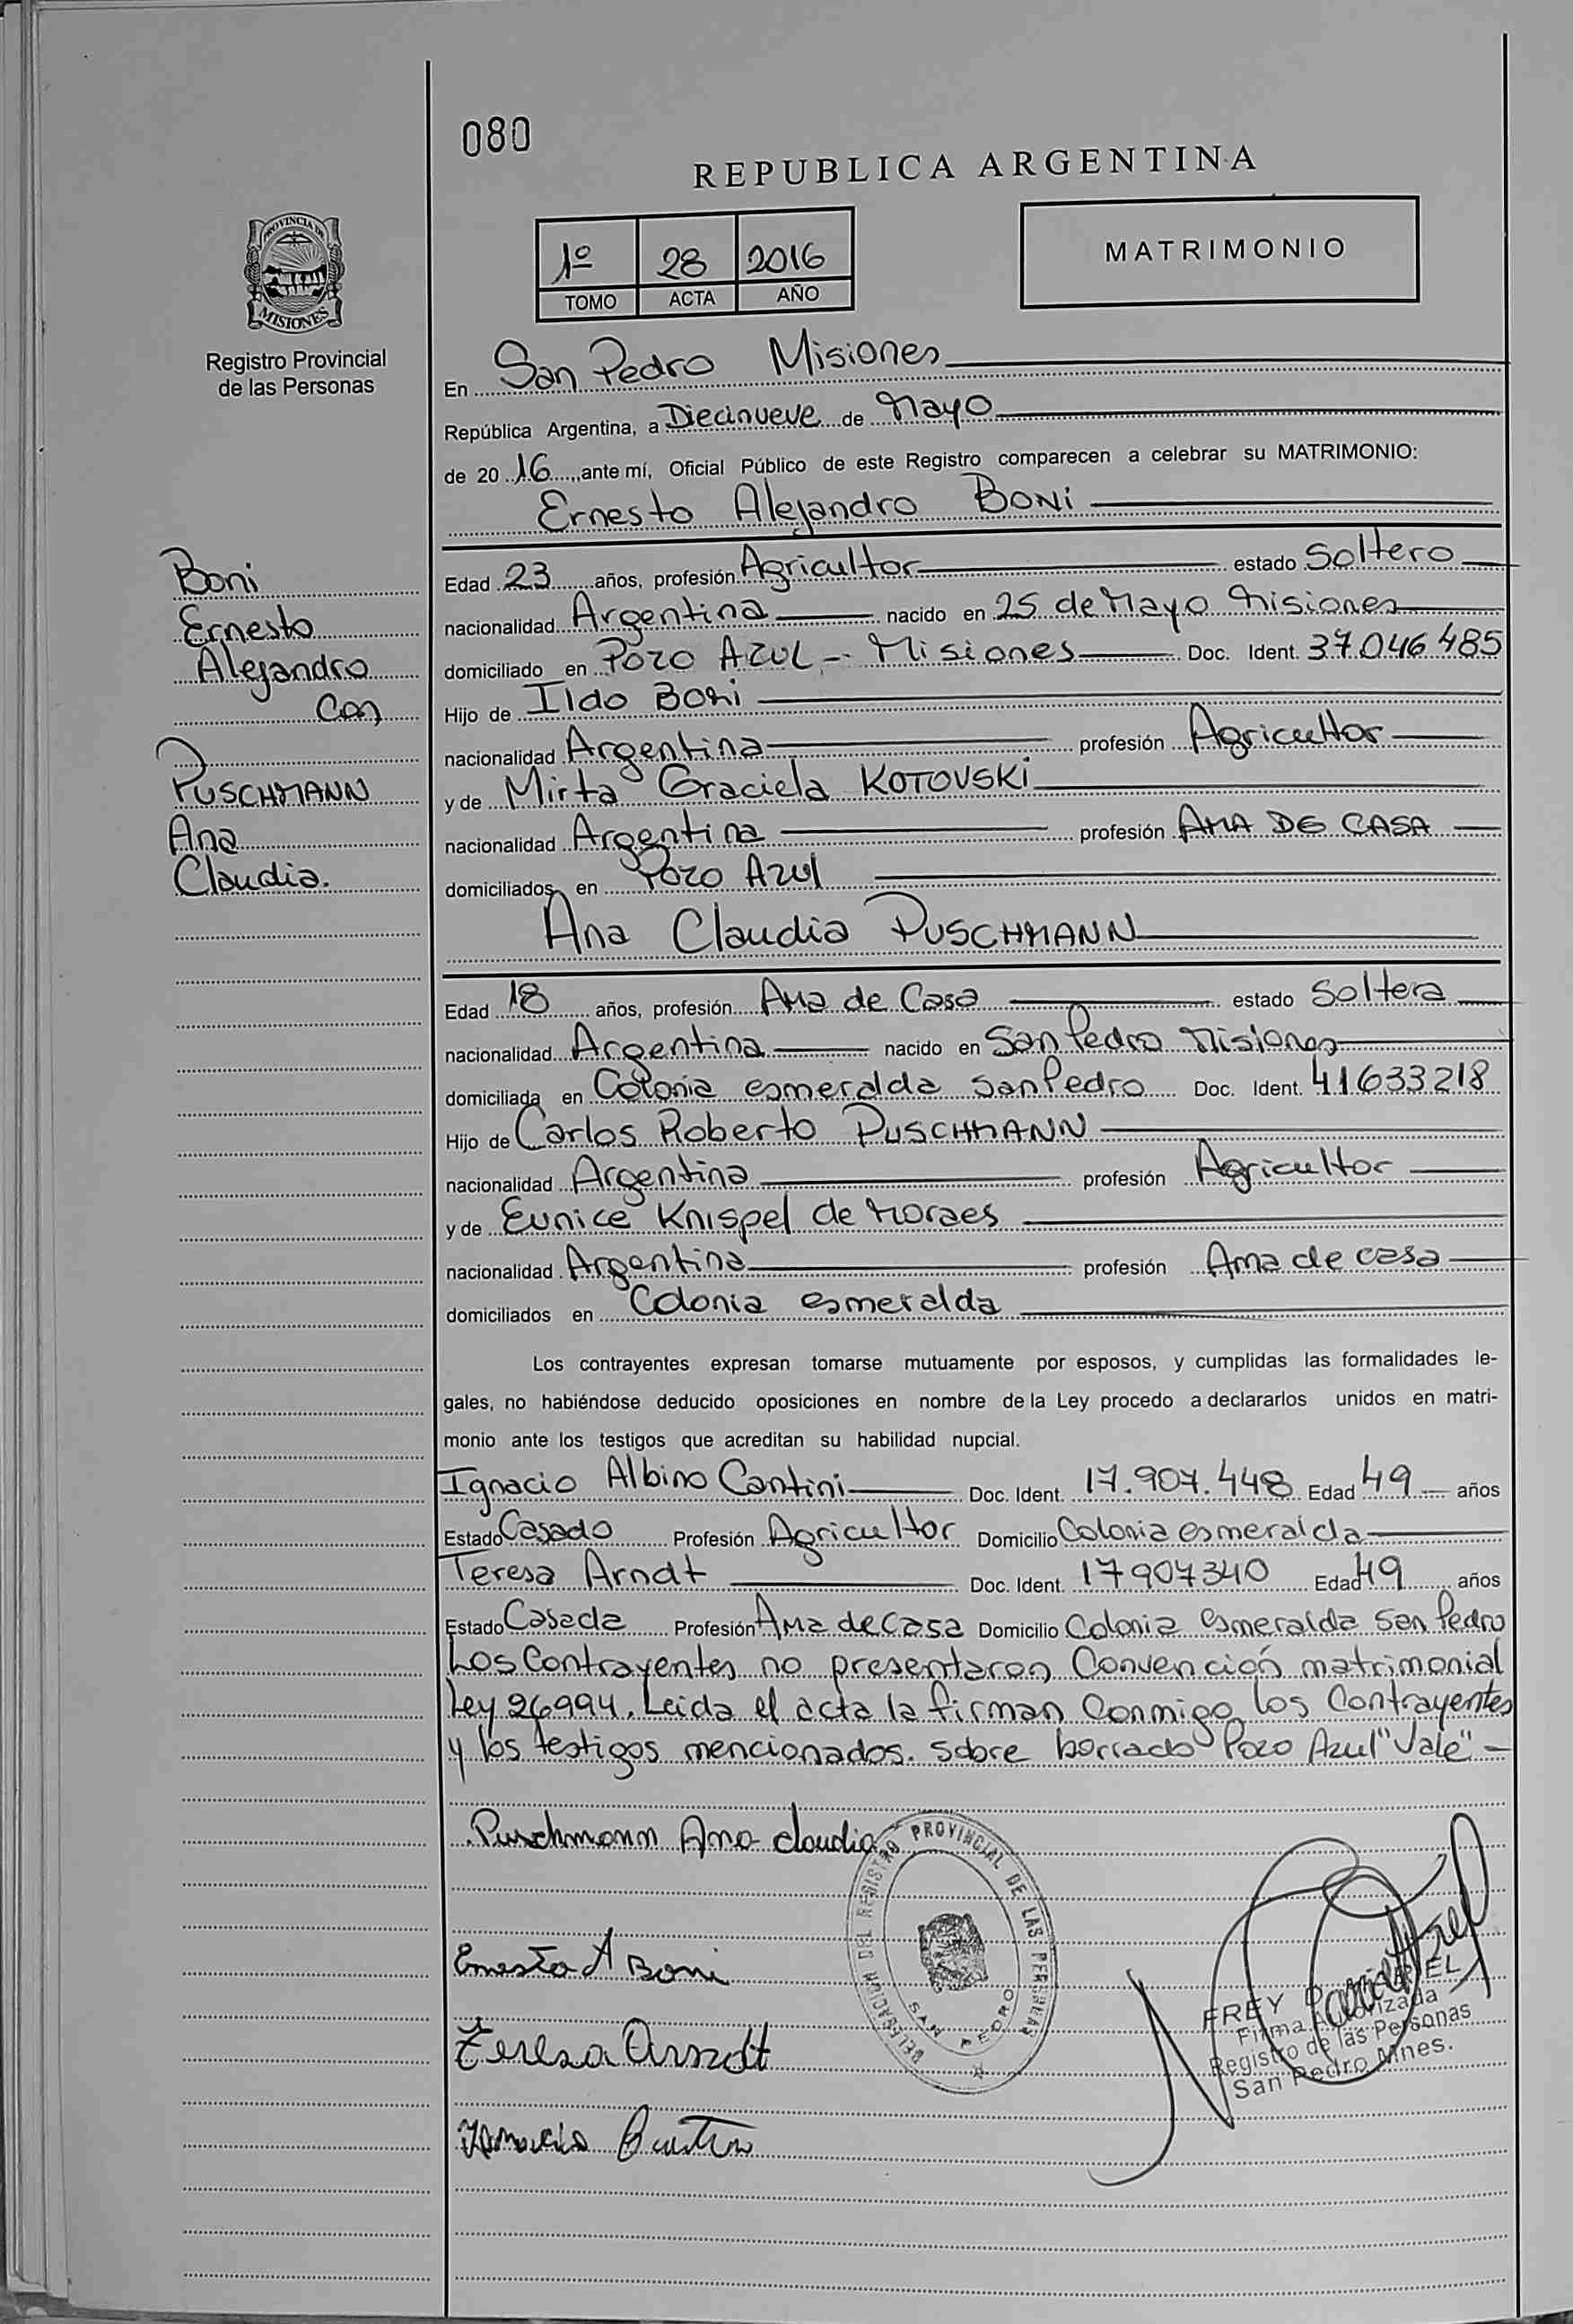 080
REPUBLICA ARGENTINA
PROVINCIA DE
MISIONES
Registro Provincial
de las Personas
1º 28 2016
TOMO ACTA AÑO
MATRIMONIO
En San Pedro Misiones
República Argentina, a Diecinueve de Mayo
de 20 16, ante mí, Oficial Público de este Registro comparecen a celebrar su MATRIMONIO:
Ernesto Alejandro BONi
Boni
Ernesto
Alejandro
Con
PUSCHMANN
Ana
Claudia.
Edad 23 años, profesión Agricultor estado Soltero
nacionalidad Argentina nacido en 25 de Mayo Misiones
domiciliado en POZO AZUL - Misiones Doc. Ident. 37.046.485
Hijo de Ildo Boni
nacionalidad Argentina profesión Agricultor
y de Mirta Graciela KOTOVSKi
nacionalidad Argentina profesión AMA DE CASA
domiciliados en Pozo Azul
Ana Claudia PUSCHMANN
Edad 18 años, profesión Ama de Casa estado Soltera
nacionalidad Argentina nacido en San Pedro Misiones
domiciliada en Colonia esmeralda San Pedro Doc. Ident. 41633218
Hijo de Carlos Roberto PUSCHMANN
nacionalidad Argentina profesión Agricultor
y de Eunice Knispel de Moraes
nacionalidad Argentina profesión Ama de casa
domiciliados en Colonia esmeralda
Los contrayentes expresan tomarse mutuamente por esposos, y cumplidas las formalidades le-
gales, no habiéndose deducido oposiciones en nombre de la Ley procedo a declararlos unidos en matri-
monio ante los testigos que acreditan su habilidad nupcial.
Ignacio Albino Cantini Doc. Ident. 17.907.448 Edad 49 años
Estado Casado Profesión Agricultor Domicilio Colonia esmeralda
Teresa Arndt Doc. Ident. 17907340 Edad 49 años
Estado Casada Profesión Ama de Casa Domicilio Colonia esmeralda San Pedro
Los Contrayentes no presentaron Convención matrimonial
Ley 26994. Leida el acta la firman Conmigo los Contrayentes
y los testigos mencionados. Sobre borrado Pozo Azul "Vale" -
Puschmann Ana claudia
DELEGACION DEL REGISTRO PROVINCIAL DE LAS PERSONAS
SAN PEDRO
Ernesto A Boni
Teresa Arndt
FREY
Firma Autorizada
Registro de las Personas
San Pedro Mnes.